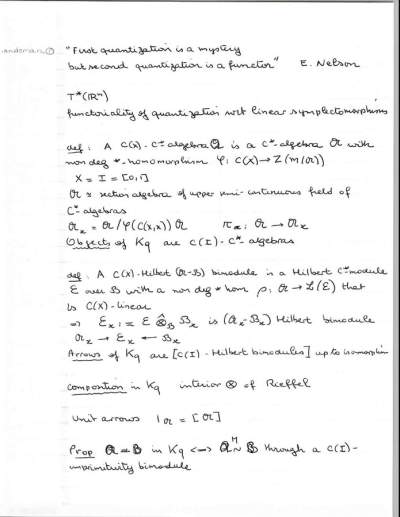 Landsman ①
"First quantization is a mystery
but second quantization is a functor" E. Nelson
T*(ℝⁿ)
functoriality of quantization wrt linear symplectomorphisms
def : A C(X) - C*-algebra 𝒜 is a C*-algebra 𝒜 with
non deg *-homomorphism φ : C(X) → Z(M(𝒜))
X = I = [0,1]
𝒜 ≅ section algebra of upper semi-continuous field of
C*-algebras
𝒜ₓ = 𝒜 / φ(C(X,x)) 𝒜 πₓ : 𝒜 → 𝒜ₓ
Objects of Kq are C(I) - C*-algebras
def : A C(X)-Hilbert (𝒜-ℬ) bimodule is a Hilbert C*module
ℰ over ℬ with a non deg *hom ρ : 𝒜 → ℒ(ℰ) that
is C(X)-linear
⇒ ℰₓ := ℰ ⊗̂_ℬ ℬₓ is (𝒜ₓ-ℬₓ) Hilbert bimodule
𝒜ₓ → ℰₓ ← ℬₓ
Arrows of Kq are [C(I)-Hilbert bimodules] up to isomorphism
composition in Kq interior ⊗ of Rieffel
Unit arrows 1_𝒜 = [𝒜]
Prop 𝒜 ≅ ℬ in Kq <=> 𝒜 ~ᴹ ℬ through a C(I)-
imprimitivity bimodule